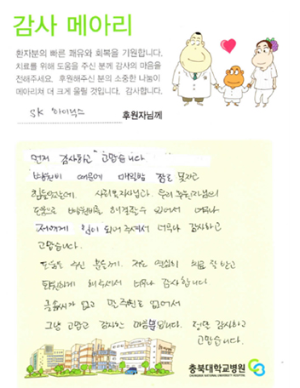 감사 메아리
환자분의 빠른 쾌유와 회복을 기원합니다.
치료를 위해 도움을 주신 분께 감사의 마음을
전해주세요. 후원해주신 분의 소중한 나눔이
메아리쳐 더 크게 울릴 것입니다. 감사합니다.
SK 하이닉스 후원자님께
먼저 감사하고 고맙습니다
병원비 때문에 매일밤 잠도 못자고
힘들었는데. 사회복지사님과 우리 후원자님의
도움으로 병원비를 해결할 수 있어서 너무나
저에게 힘이 되어 주셔서 너무나 감사하고
고맙습니다.
도움을 주신 치료 잘 받고
해주셔서 너무나 감사합니다
없고 없어서
그냥 고맙고 감사한 마음뿐입니다. 정말 감사하고
고맙습니다.
충북대학교병원
CHUNGBUK NATIONAL UNIVERSITY HOSPITAL